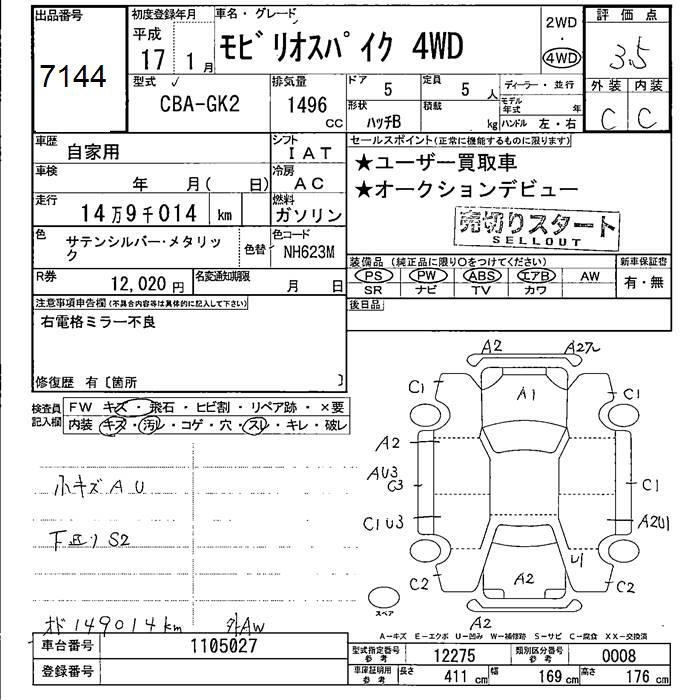 出品番号
7144
初度登録年月
平成
17 1 月
車名・グレード
モビリオスパイク 4WD
2WD
・
4WD
評価点
3.5
外装 内装
C C
型式
CBA-GK2
排気量
1496
CC
ドア
5
定員
5 人
ディーラー・並行
形状
ハッチB
積載
kg
モデル年式 年
ハンドル 左・右
車歴
自家用
シフト
IAT
セールスポイント(正常に機能するものに限ります)
★ユーザー買取車
★オークションデビュー
車検
年 月( 日)
冷房
AC
走行
14万9千014 km
燃料
ガソリン
売切りスタート
SELLOUT
色
サテンシルバー・メタリック
色替
色コード
NH623M
装備品(純正品に限り○をつけてください)
新車保証書
PS PW ABS エアB AW
SR ナビ TV カワ
有・無
R券
12,020 円
名変通知期限
月 日
後日品
注意事項申告欄(不具合内容等は具体的に記入して下さい)
右電格ミラー不良
修復歴 有〔箇所 〕
検査員記入欄
FW キズ・飛石・ヒビ割・リペア跡・×要
内装 キズ・汚レ・コゲ・穴・スレ・キレ・破レ
小キズAU
下廻りS2
オド149014km 外AW
A2
A1
C1
C1
A2
AU3
G3
C1
C1U3
A2U1
U1
C2
C2
A2
A2
スペア
A―キズ E―エクボ U―凹み W―補修跡 S―サビ C―腐食 XX―交換済
車台番号
1105027
型式指定番号
参考
12275
類別区分番号
参考
0008
登録番号
車庫証明用
参考
長さ 411 cm 幅 169 cm 高さ 176 cm